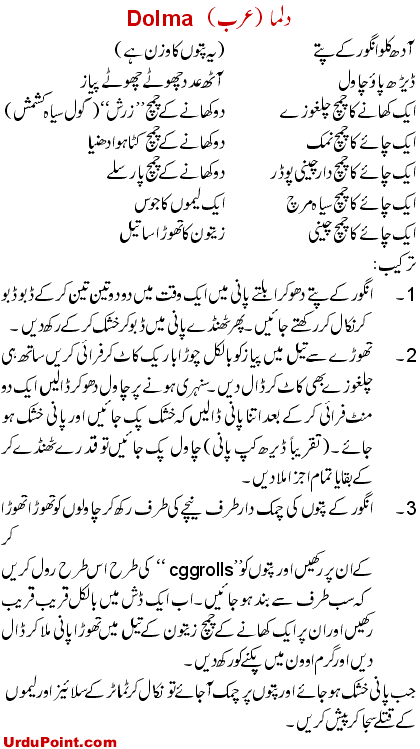 دلما (عرب) Dolma
آدھ کلو انگور کے پتے (یہ پتوں کا وزن ہے)
ڈیڑھ پاؤ چاول آٹھ عدد چھوٹے چھوٹے پیاز
ایک کھانے کا چمچ چلغوزے دو کھانے کے چمچ ”زرش“ (گول سیاہ کشمش)
ایک چائے کا چمچ نمک دو کھانے کے چمچ کٹا ہوا دھنیا
ایک چائے کا چمچ دار چینی پوڈر دو کھانے کے چمچ پارسلے
ایک چائے کا چمچ سیاہ مرچ ایک لیموں کا جوس
ایک چائے کا چمچ چینی زیتون کا تھوڑا سا تیل
ترکیب:
1۔ انگور کے پتے دھو کر ابلتے پانی میں ایک وقت میں دو دو تین تین کر کے ڈبو ڈبو
کر نکال کر رکھتے جائیں۔ پھر ٹھنڈے پانی میں ڈبو کر خشک کر کے رکھ دیں۔
2۔ تھوڑے سے تیل میں پیاز کو بالکل چوڑا باریک کاٹ کر فرائی کریں ساتھ ہی
چلغوزے بھی کاٹ کر ڈال دیں۔ سنہری ہونے پر چاول دھو کر ڈالیں ایک دو
منٹ فرائی کر کے بعد اتنا پانی ڈالیں کہ خشک پک جائیں اور پانی خشک ہو
جائے۔ (تقریباً ڈیڑھ کپ پانی) چاول پک جائیں تو قدرے ٹھنڈے کر
کے بقایا تمام اجزا ملا دیں۔
3۔ انگور کے پتوں کی چمک دار طرف نیچے کی طرف رکھ کر چاولوں کو تھوڑا تھوڑا
کر
کے ان پر رکھیں اور پتوں کو ”cggrolls“ کی طرح اس طرح رول کریں
کہ سب طرف سے بند ہو جائیں۔ اب ایک ڈش میں بالکل قریب قریب
رکھیں اور ان پر ایک کھانے کے چمچ زیتون کے تیل میں تھوڑا پانی ملا کر ڈال
دیں اور گرم اوون میں پکنے کو رکھ دیں۔
جب پانی خشک ہو جائے اور پتوں پر چمک آ جائے تو نکال کر ٹماٹر کے سلائیز اور لیموں
کے قتلے سجا کر پیش کریں۔
UrduPoint.com